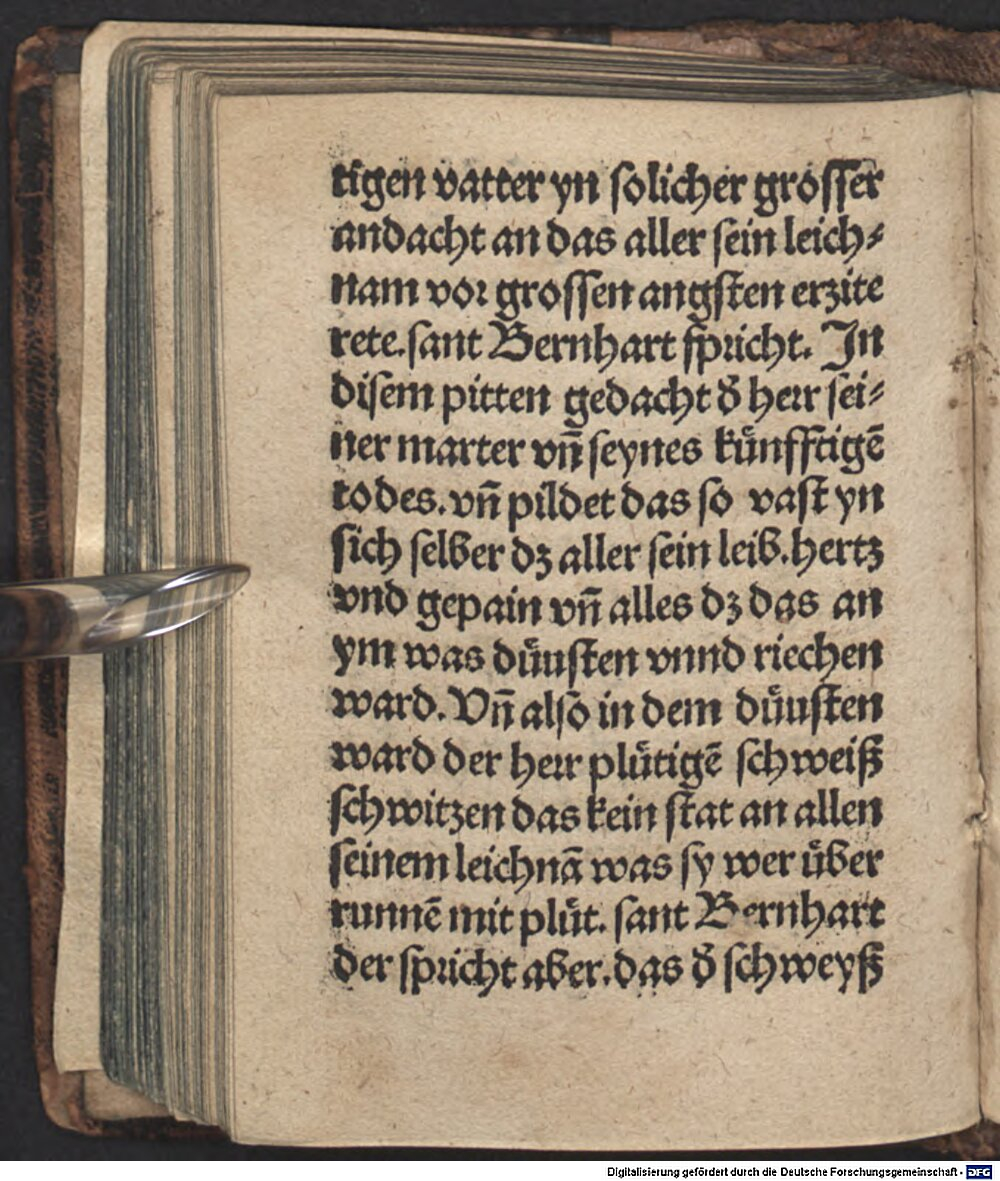 tigen vatter yn solicher grosser
andacht an das aller sein leich⸗
nam vor grossen angsten erzite
rete.sant Bernhart spricht. In
disem pitten gedacht d̕ herr sei⸗
ner marter vn̄ seynes künfftigē
todes.vn̄ pildet das so vast yn
sich selber dz aller sein leib.hertz
vnd gepain vn̄ alles dz das an
ym was dünsten vnnd riechen
ward.Vn̄ also in dem dünsten
ward der herr plůtigē schweiß
schwitzen das kein stat an allen
seinem leichnā was sy wer über
runnē mit plůt. sant Bernhart
der spricht aber.das d̕ schweyß
Digitalisierung gefördert durch die Deutsche Forschungsgemeinschaft - DFG